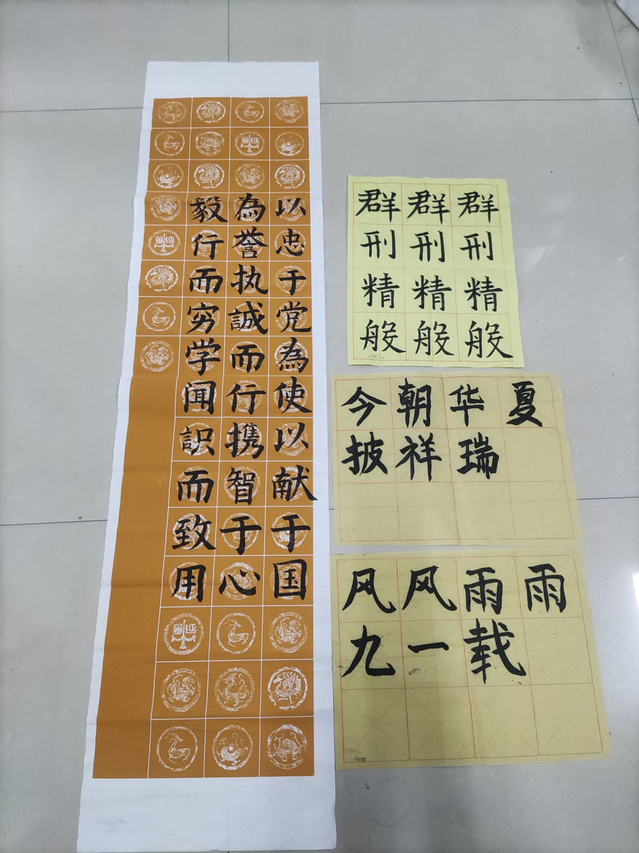 以忠于党為使以献于国
為誉执誠而行携智于心
毅行而穷学闻识而致用
群群群
刑刑刑
精精精
般般般
今朝华夏
披祥瑞
风风雨雨
九一载